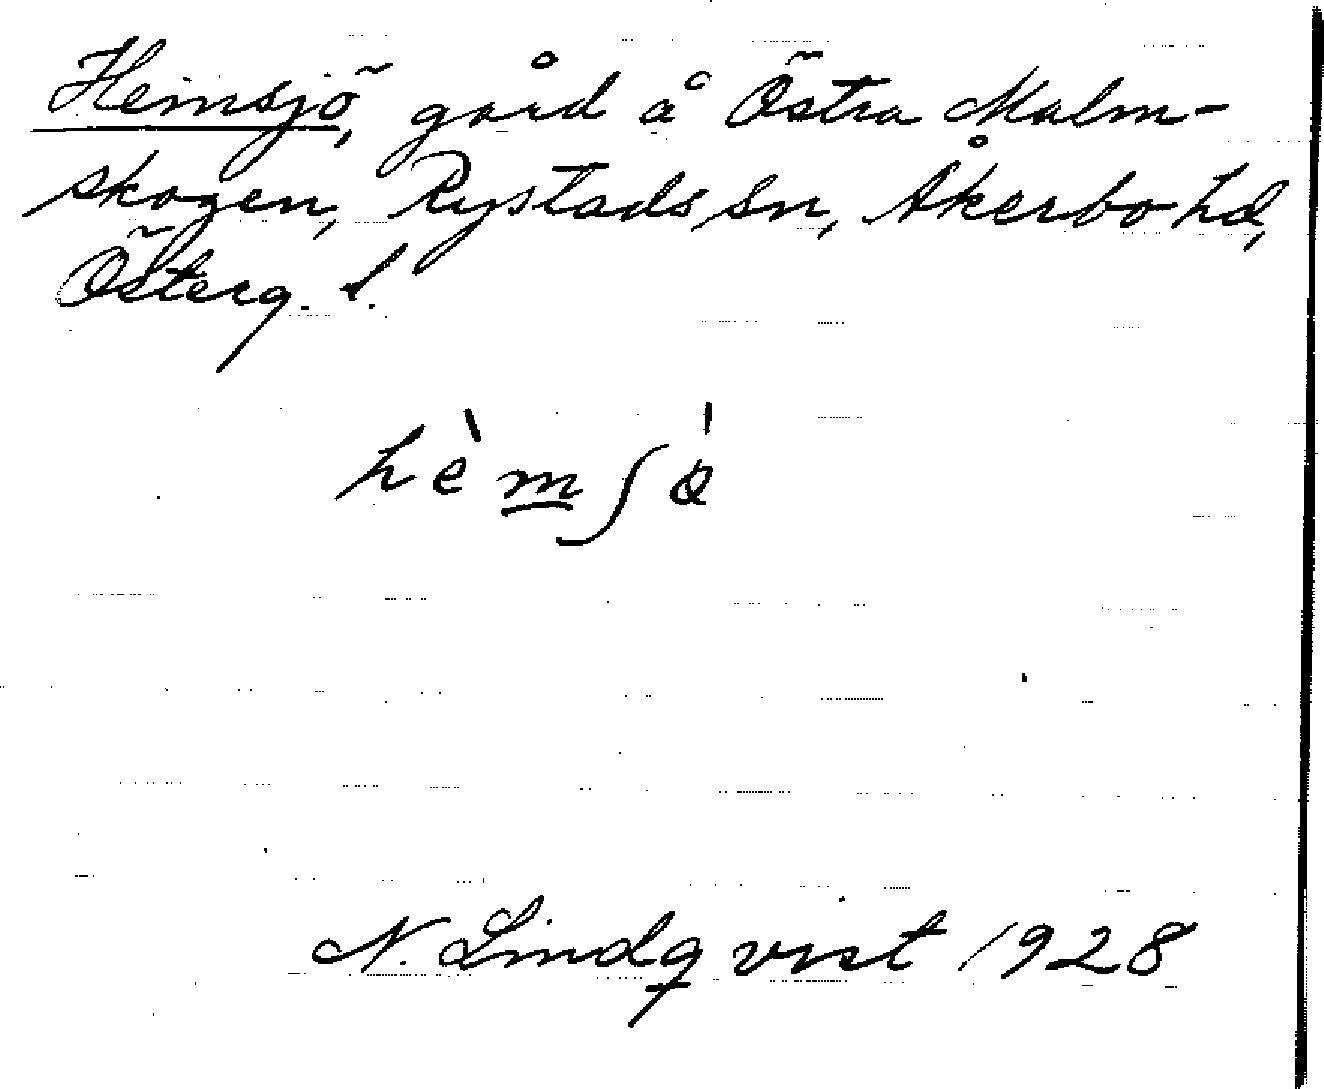 Hemsjö, gård å Östra Malm-
skogen, Rystads sn, Åkerbo hd,
Österg. l.
hèm̲ʃö̀
N. Lindqvist 1928